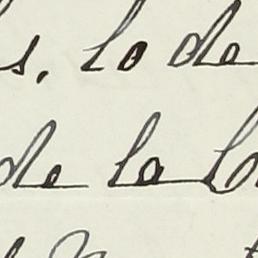 s, lo de
de la